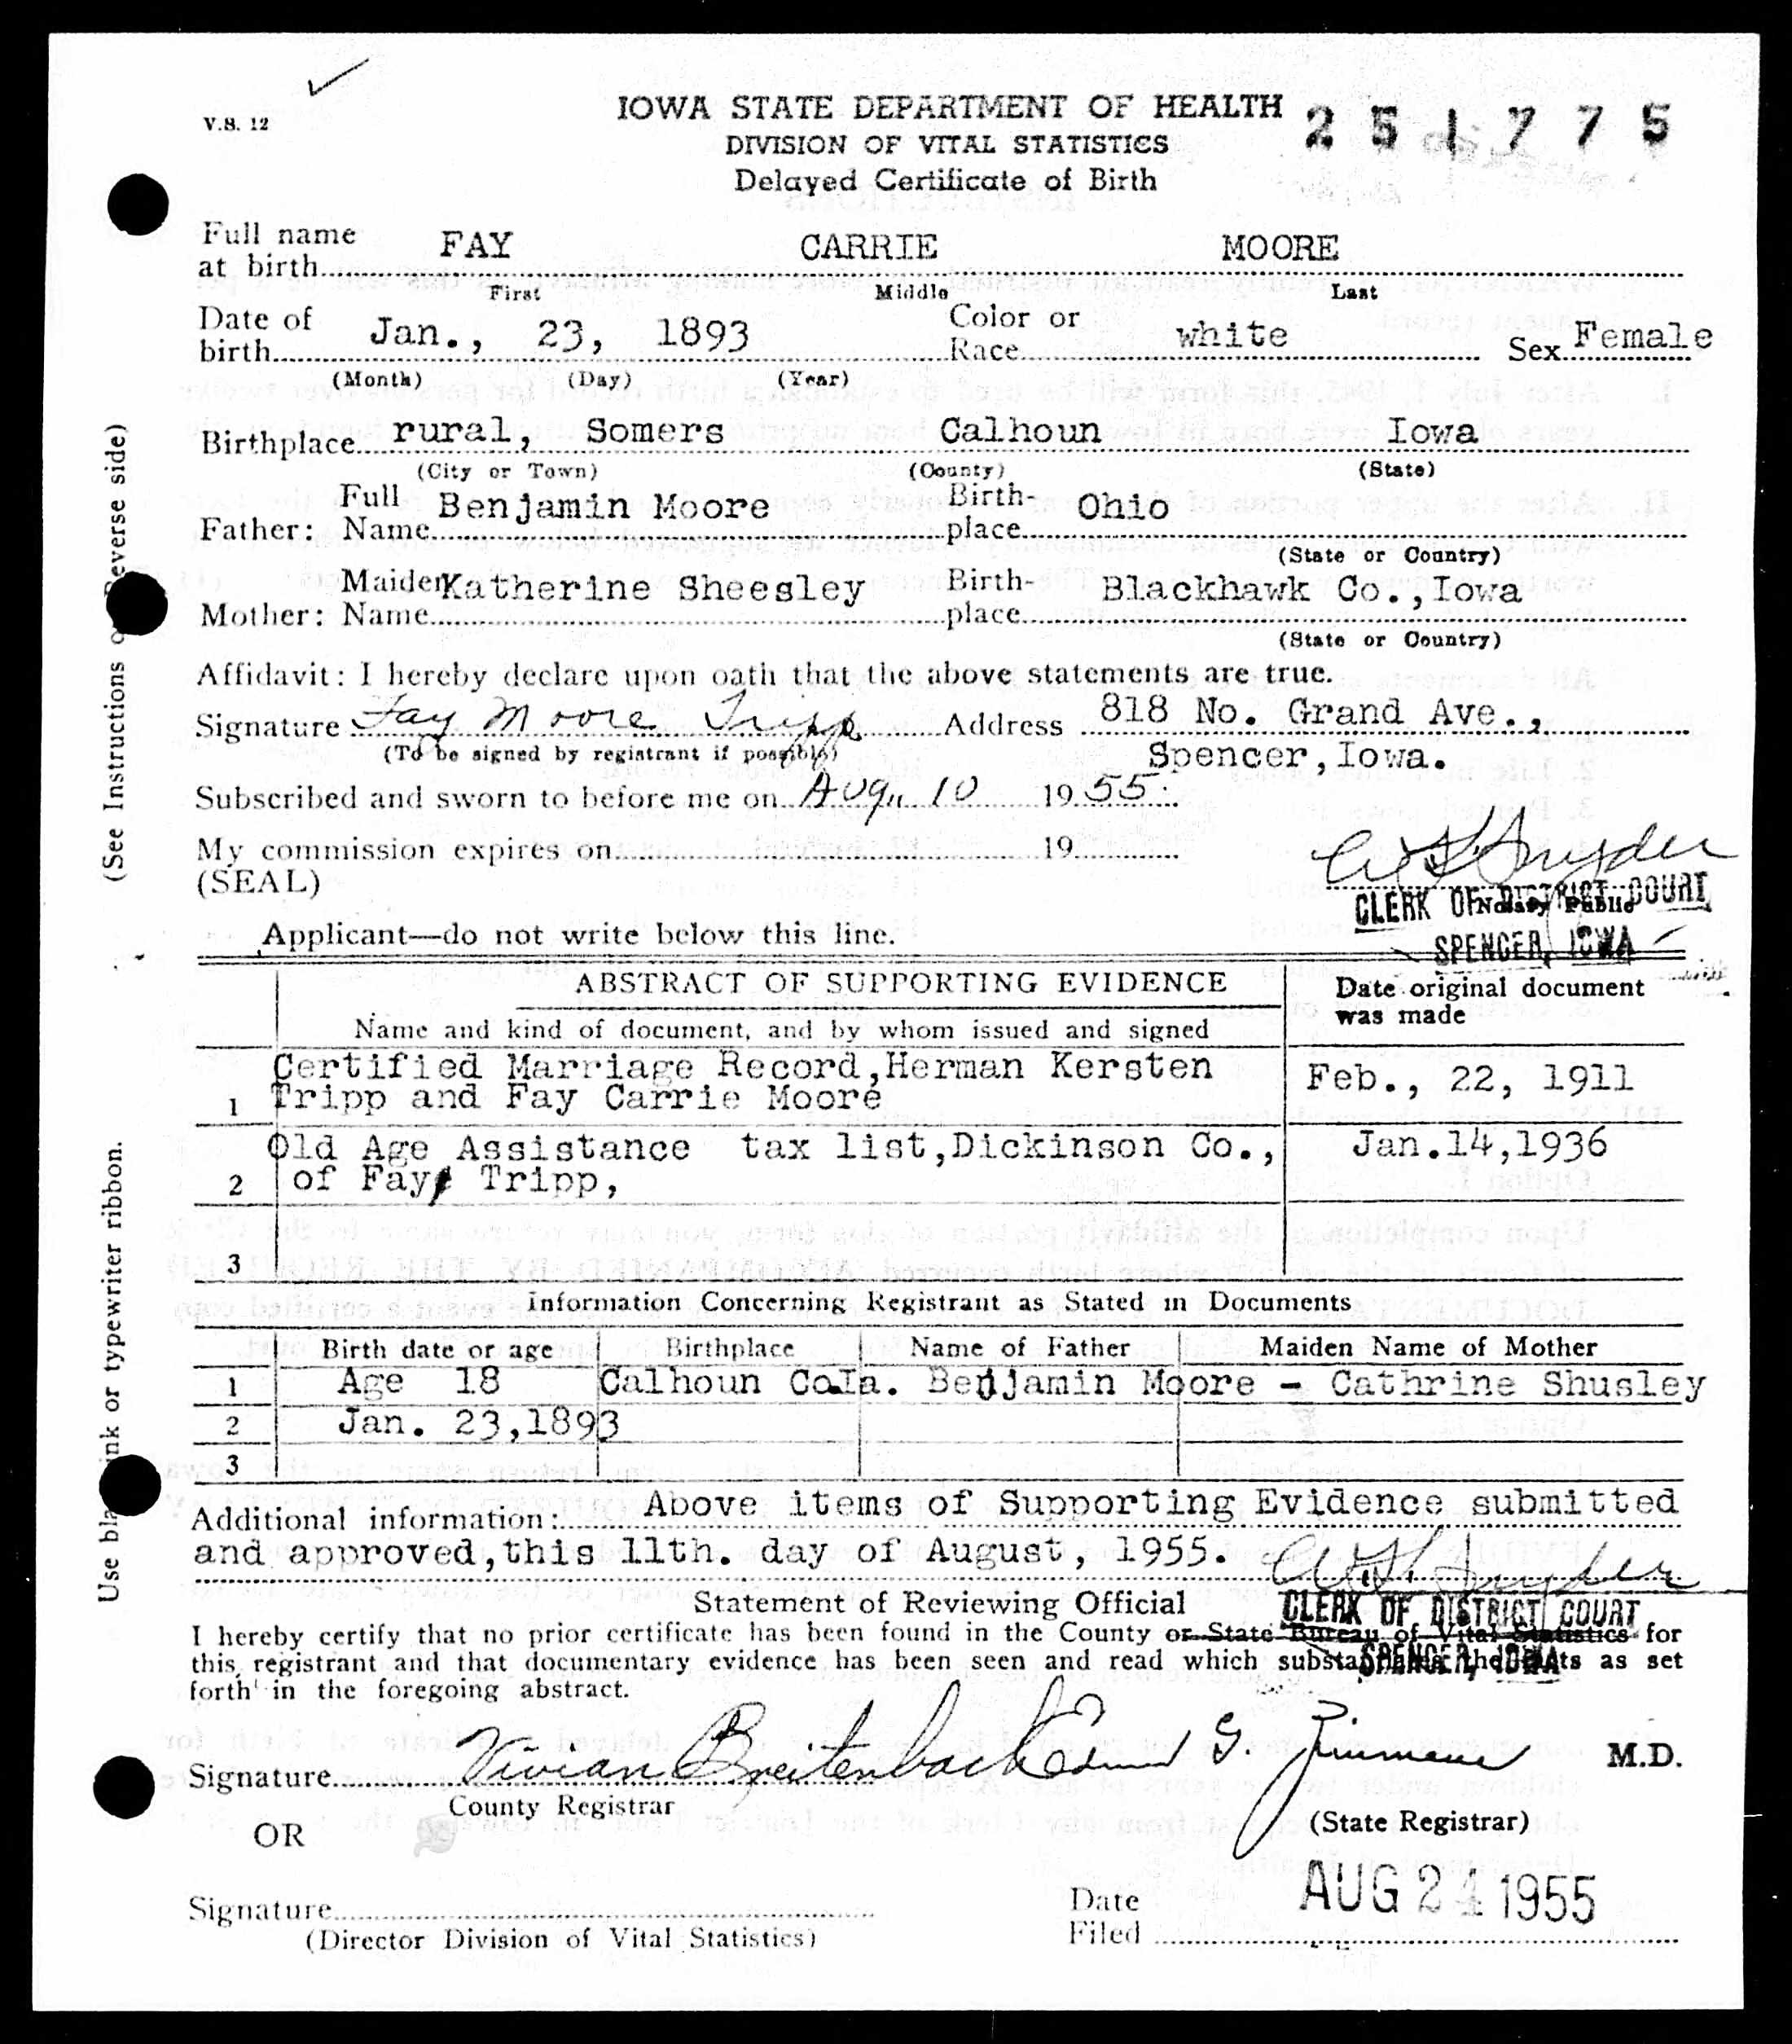 V.S. 12
IOWA STATE DEPARTMENT OF HEALTH 251775
DIVISION OF VITAL STATISTICS
Delayed Certificate of Birth
Full name at birth FAY CARRIE MOORE
First Middle Last
Date of birth Jan., 23, 1893 Color or Race white Sex Female
(Month) (Day) (Year)
Birthplace rural, Somers Calhoun Iowa
(City or Town) (County) (State)
Father: Full Name Benjamin Moore Birth-place Ohio
(State or Country)
Mother: Maiden Name Katherine Sheesley Birth-place Blackhawk Co.,Iowa
(State or Country)
Affidavit: I hereby declare upon oath that the above statements are true.
Signature Fay Moore Tripp Address 818 No. Grand Ave.,
(To be signed by registrant if possible) Spencer,Iowa.
Subscribed and sworn to before me on Aug. 10 1955.
My commission expires on 19
(SEAL)
Snyder
Notary Public
CLERK OF DISTRICT COURT
SPENCER, IOWA
Applicant—do not write below this line.
ABSTRACT OF SUPPORTING EVIDENCE Date original document
was made
Name and kind of document, and by whom issued and signed
Certified Marriage Record,Herman Kersten Feb., 22, 1911
1 Tripp and Fay Carrie Moore
Old Age Assistance tax list,Dickinson Co., Jan.14,1936
2 of Fay Tripp,
3
Information Concerning Registrant as Stated in Documents
Birth date or age Birthplace Name of Father Maiden Name of Mother
1 Age 18 Calhoun Co.Ia. Benjamin Moore - Cathrine Shusley
2 Jan. 23,1893
3
Additional information: Above items of Supporting Evidence submitted
and approved,this 11th. day of August, 1955. Snyder
Statement of Reviewing Official CLERK OF DISTRICT COURT
SPENCER, IOWA
I hereby certify that no prior certificate has been found in the County or State Bureau of Vital Statistics for
this registrant and that documentary evidence has been seen and read which substantiates the facts as set
forth in the foregoing abstract.
Signature Vivian Breitenbach Edmund G. Zimmerer M.D.
County Registrar (State Registrar)
OR
Signature Date Filed AUG 24 1955
(Director Division of Vital Statistics)
(See Instructions on Reverse side)
Use black ink or typewriter ribbon.